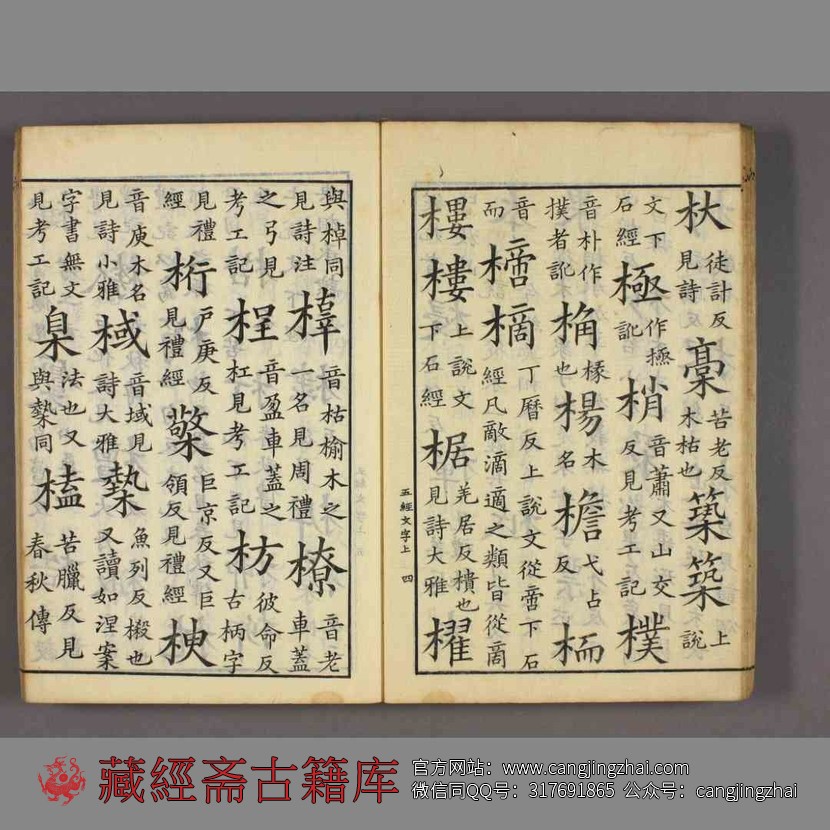 杕徒計反見詩槀苦老反木枯也築築上說
文下石經極作㮄訛梢音蕭又山交反見考工記樸
音朴作撲者訛桷椽也楊木名檐弋占反栭
音而樀丁曆反上說文從啻下石經凡敵滴適之類皆從啇
樓樓上說文下石經椐羌居反樻也見詩大雅櫂
五經文字上 四
與棹同見詩注音枯榆木之一名見周禮橑音老車蓋
之弓見考工記桯音盈車蓋之杠見考工記枋彼命反古柄字
見禮經桁戶庚反見禮經檠巨京反又巨領反見禮經楰
音庾木名見詩小雅棫音域見詩大雅槷魚列反樧也又讀如涅案
字書無文見考工記臬法也又與槷同榼苦臘反見春秋傳
藏經斋古籍库
官方网站：www.cangjingzhai.com
微信同QQ号：317691865 公众号：cangjingzhai